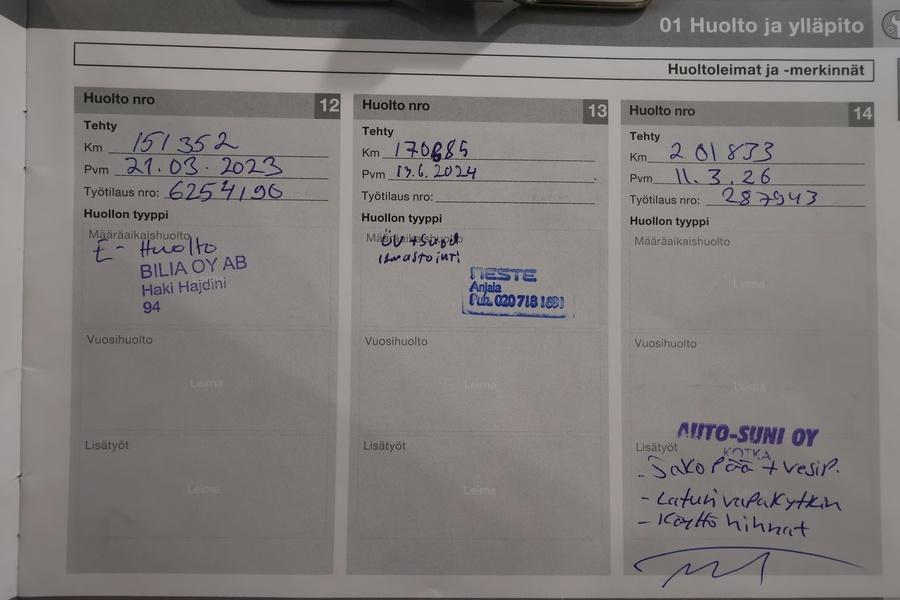 01 Huolto ja ylläpito
Huoltoleimat ja -merkinnät
Huolto nro 12
Tehty
Km 151352
Pvm 21.03.2023
Työtilaus nro: 6254190
Huollon tyyppi
Määräaikaishuolto
E- Huolto
BILIA OY AB
Haki Hajdini
94
Vuosihuolto
Leima
Lisätyöt
Leima
Huolto nro 13
Tehty
Km 170885
Pvm 13.6.2024
Työtilaus nro:
Huollon tyyppi
Määräaikaishuolto
ilmastointi
NESTE
Anjala
Puh. 020 718 1691
Vuosihuolto
Leima
Lisätyöt
Leima
Huolto nro 14
Tehty
Km 201833
Pvm 11.3.26
Työtilaus nro: 287943
Huollon tyyppi
Määräaikaishuolto
Leima
Vuosihuolto
Leima
AUTO-SUNI OY
KOTKA
Lisätyöt
- Jakopää + vesip.
- Laturi vapakytkin
- Käyttö hihnat